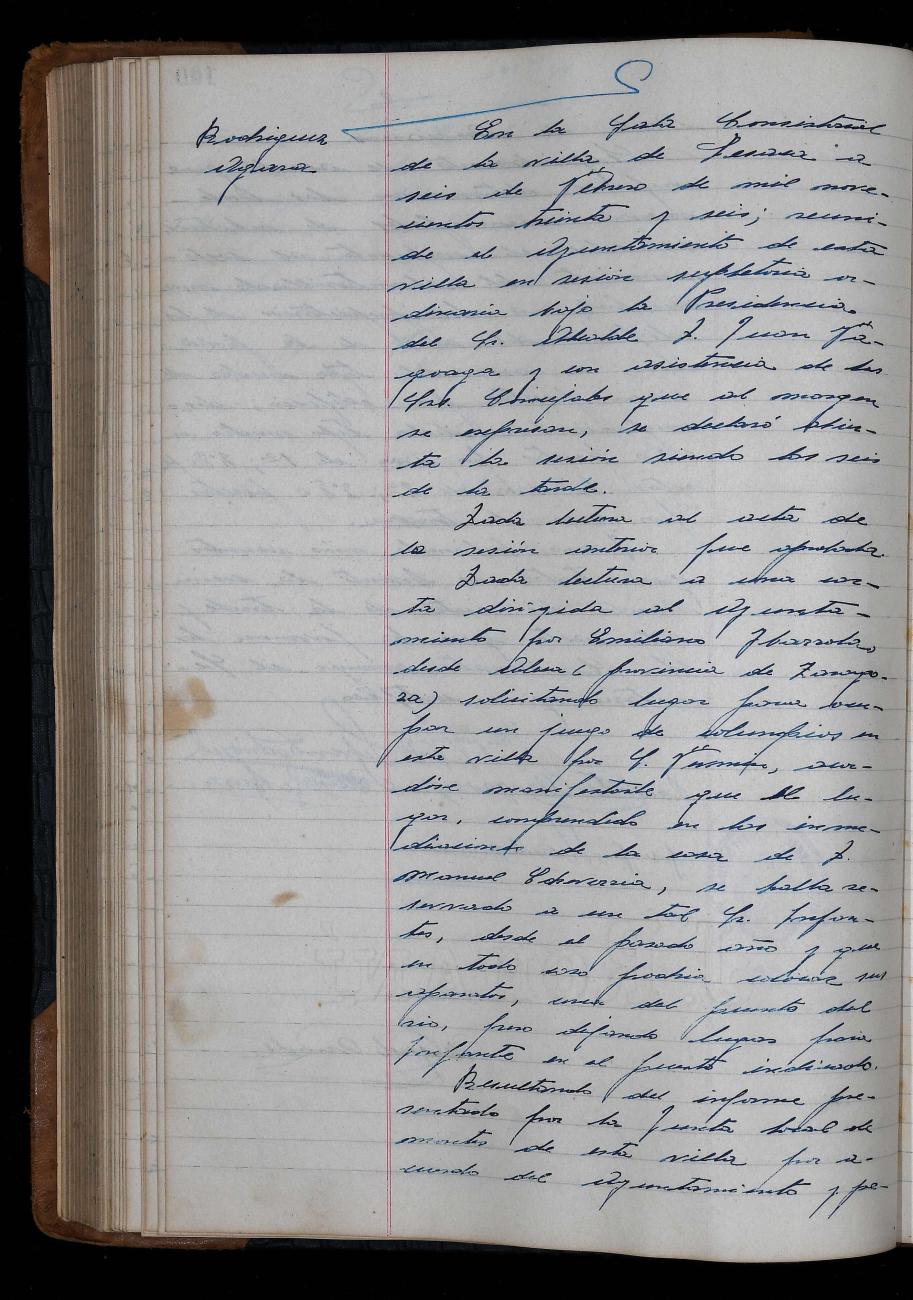 Rodriguez
Aguera
En la Sala Consistorial
de la villa de Lesaca a
seis de Febrero de mil nove-
cientos treinta y seis; reuni-
do el Ayuntamiento de esta
villa en sesión supletoria or-
dinaria bajo la Presidencia
del Sr. Alcalde D. Juan
y con asistencia de los
Srs. Concejales que al margen
se expresan, se declaró abier-
ta la sesión siendo las seis
de la tarde.
Dada lectura al acta de
la sesión anterior fue aprobada.
Dada lectura a una car-
ta dirigida al Ayunta-
miento por Emiliano Ybarrola
desde (provincia de Zarago-
za) solicitando lugar para ocu-
par un juego de columpios en
esta villa por S. Fermin, acor-
dóse manifestarle que el lu-
gar, comprendido en las inme-
diaciones de la casa de D.
Manuel Echeverria, se halla re-
servado a un tal Sr.
desde el pasado año y que
en todo caso podria colocar sus
aparatos, cerca del puente del
rio, pero dejando lugar para
en el puesto indicado.
Resultando del informe pre-
sentado por la Junta local de
montes de esta villa por a-
cuerdo del Ayuntamiento y pe-